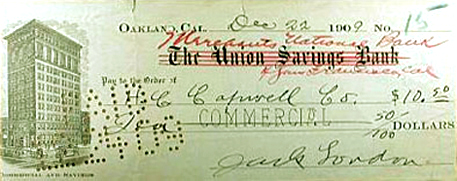 OAKLAND, CAL. Dec 22 1909 No. 15
Merchants National Bank
The Union Savings Bank
of San Francisco, Cal
Pay to the Order of
H C Capwell Co. $10.50
Ten 50/100 DOLLARS
COMMERCIAL
Jack London
COMMERCIAL AND SAVINGS